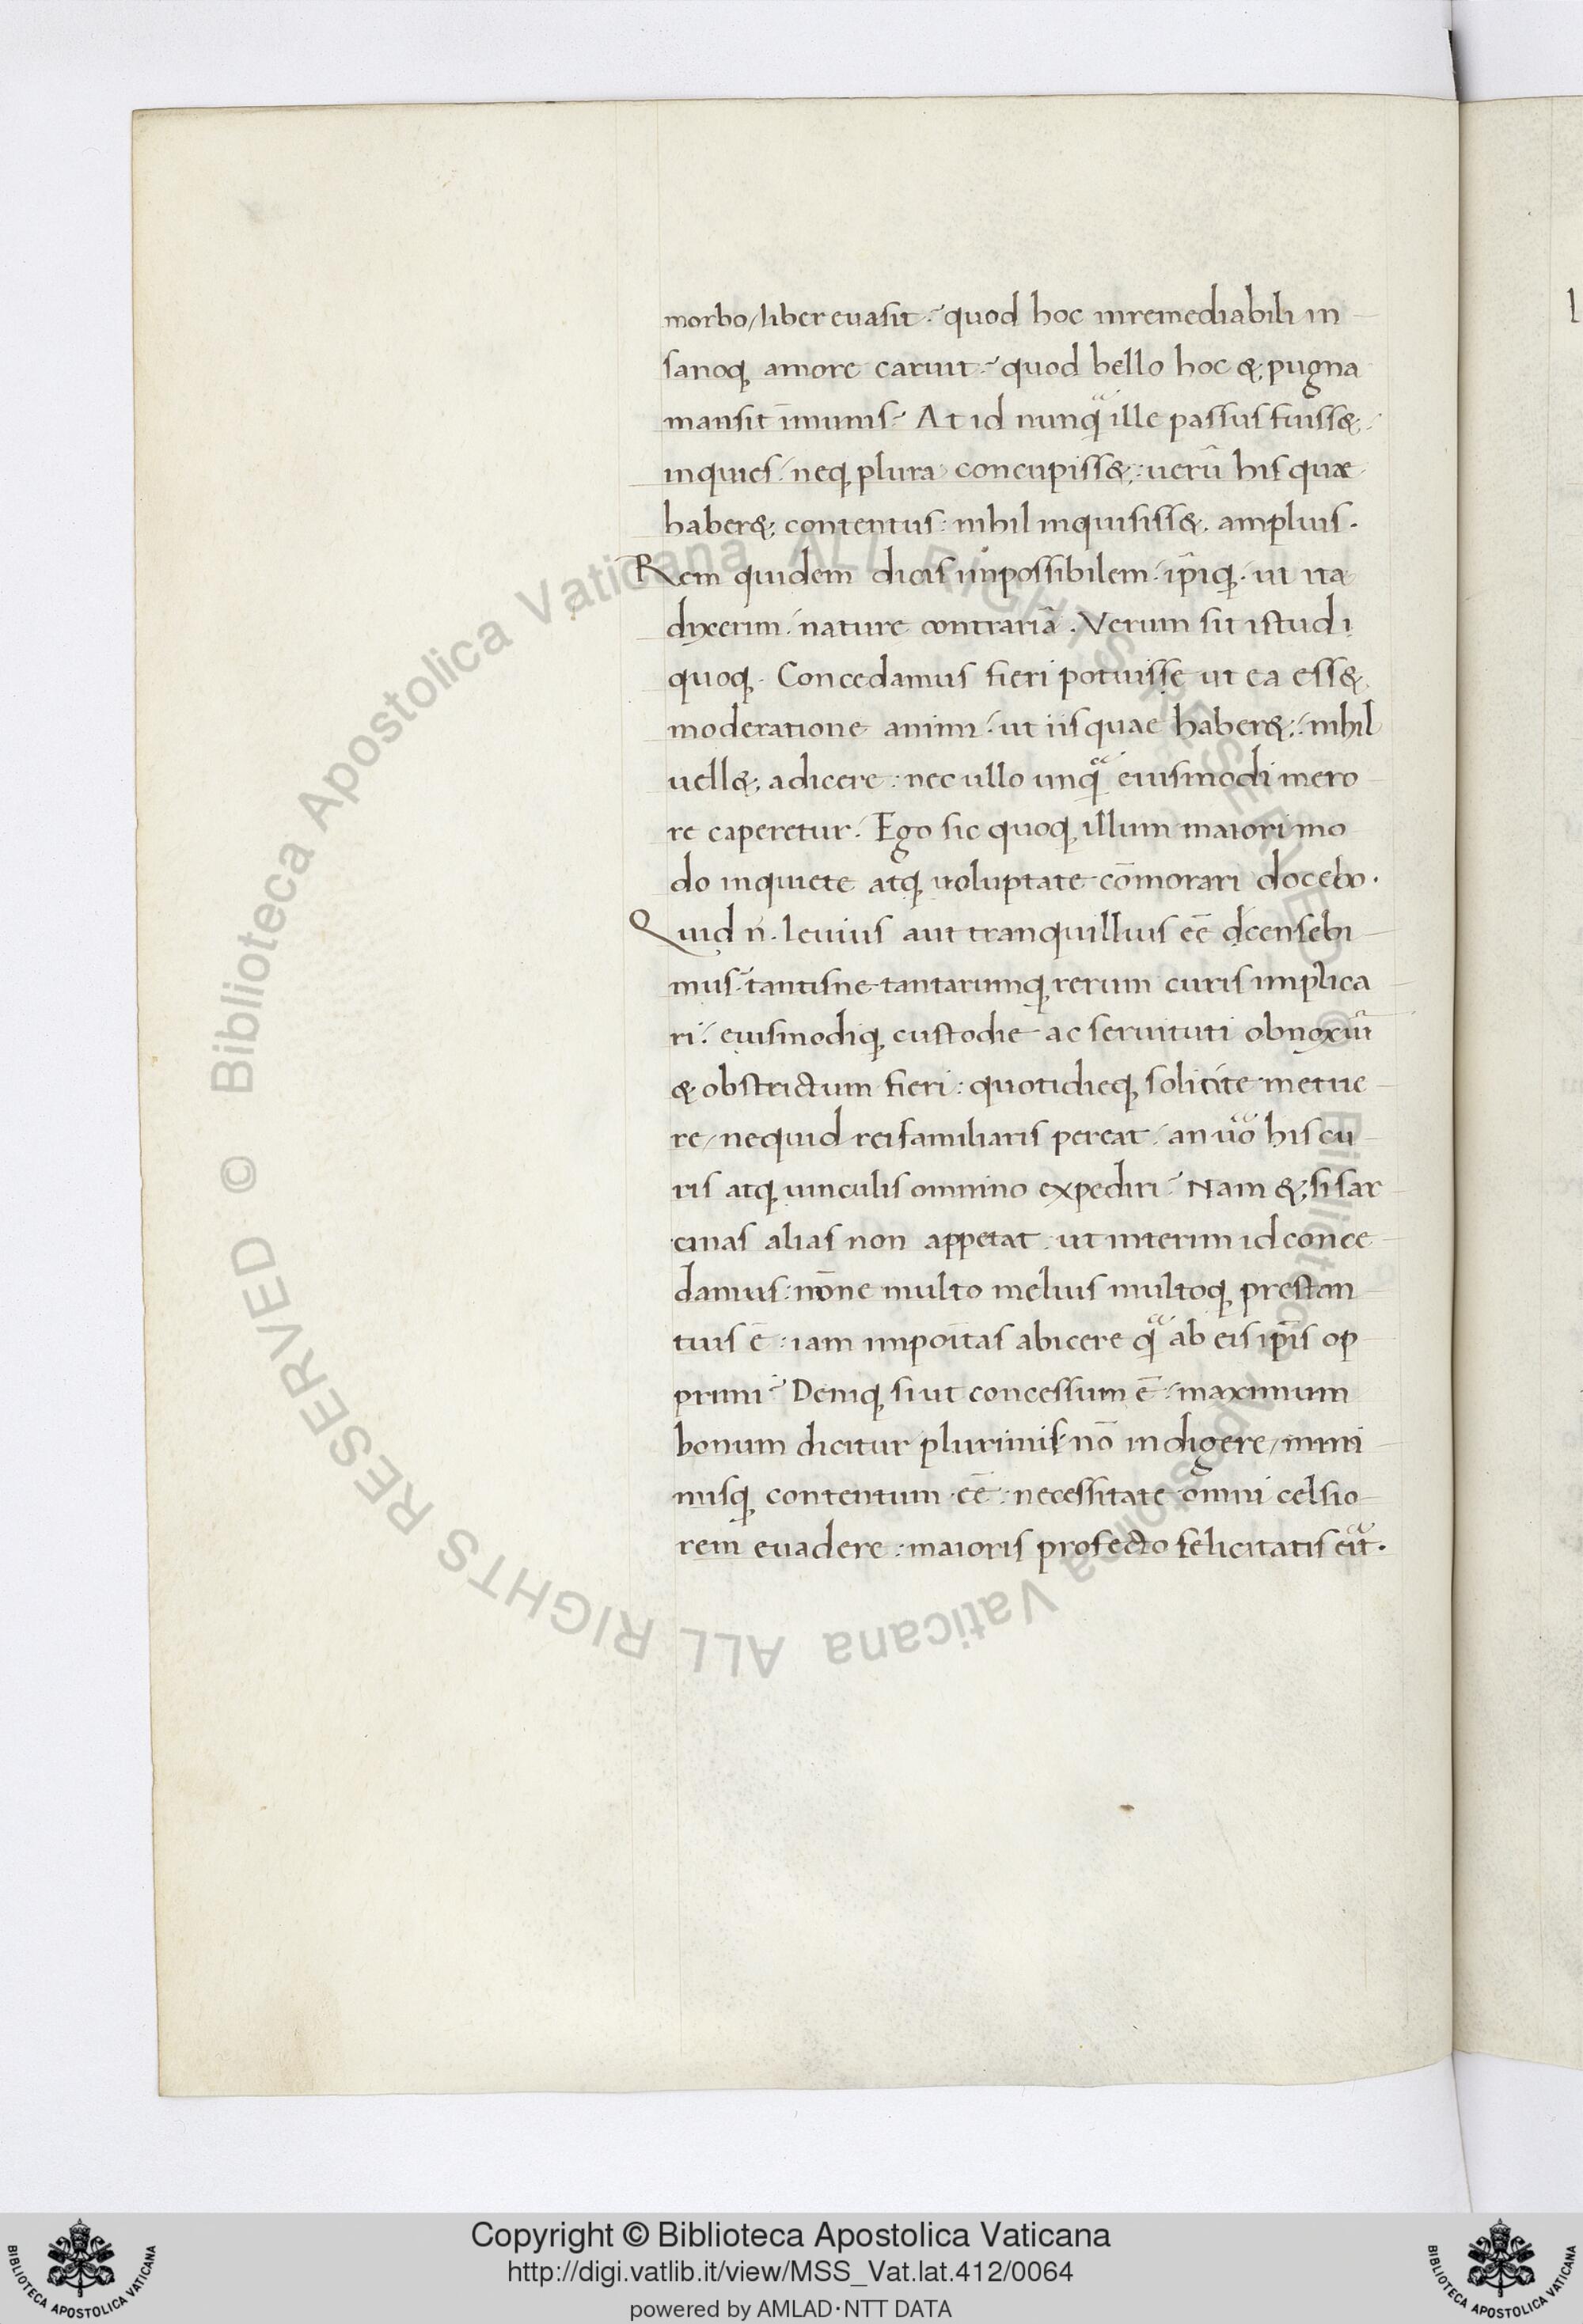 morbo / liber euasit · quod hoc inremediabili in
sanoq; amore caruit · quod bello hoc &; pugna
mansit īmunis · At id nunq̃ ille passus fuiss&;
inquies · neq; plura concupiss&; : uerū his quae
haber&; contentus : nihil inquisiss&; amplius .
Rem quidem dicis impossibilem · ip̄iq; · ut ita
dixerim · nature contrariā . Verum sit istud
quoq; · Concedamus fieri potuisse ut ea ess&;
moderatione animi · ut iis quae haber&; · nihil
uell&; adicere : nec ullo unq̃ eiusmodi mero
re caperetur · Ego sic quoq; illum maiori mo
do inquiete atq; uoluptate cōmorari docebo .
Quid n̄ . leuius aut tranquillius eē censebi
mus · tantisne tantarumq; rerum curis implica
ri · eiusmodiq; custodie ac seruituti obnoxiū
& obstrictum fieri : quotidieq; solicite metue
re / nequid rei familiaris pereat · an ūo his cu
ris atq; uinculis omnino expediri · Nam &; si sar
cinas alias non appetat · ut interim id conce
damus : nōne multo melius multoq; prestan
tius ē : iam impoītas abicere q̃ ab eis ip̄is op
primi · Deniq; si ut concessum ē · maximum
bonum dicitur plurimis nō indigere / mini
misq; contentum eē : necessitate omni celsio
rem euadere : maioris profecto felicitatis eīt .
© Biblioteca Apostolica Vaticana ALL RIGHTS RESERVED © Biblioteca Apostolica Vaticana ALL RIGHTS RESERVED
Copyright © Biblioteca Apostolica Vaticana
http://digi.vatlib.it/view/MSS_Vat.lat.412/0064
powered by AMLAD·NTT DATA
BIBLIOTECA APOSTOLICA VATICANA
BIBLIOTECA APOSTOLICA VATICANA